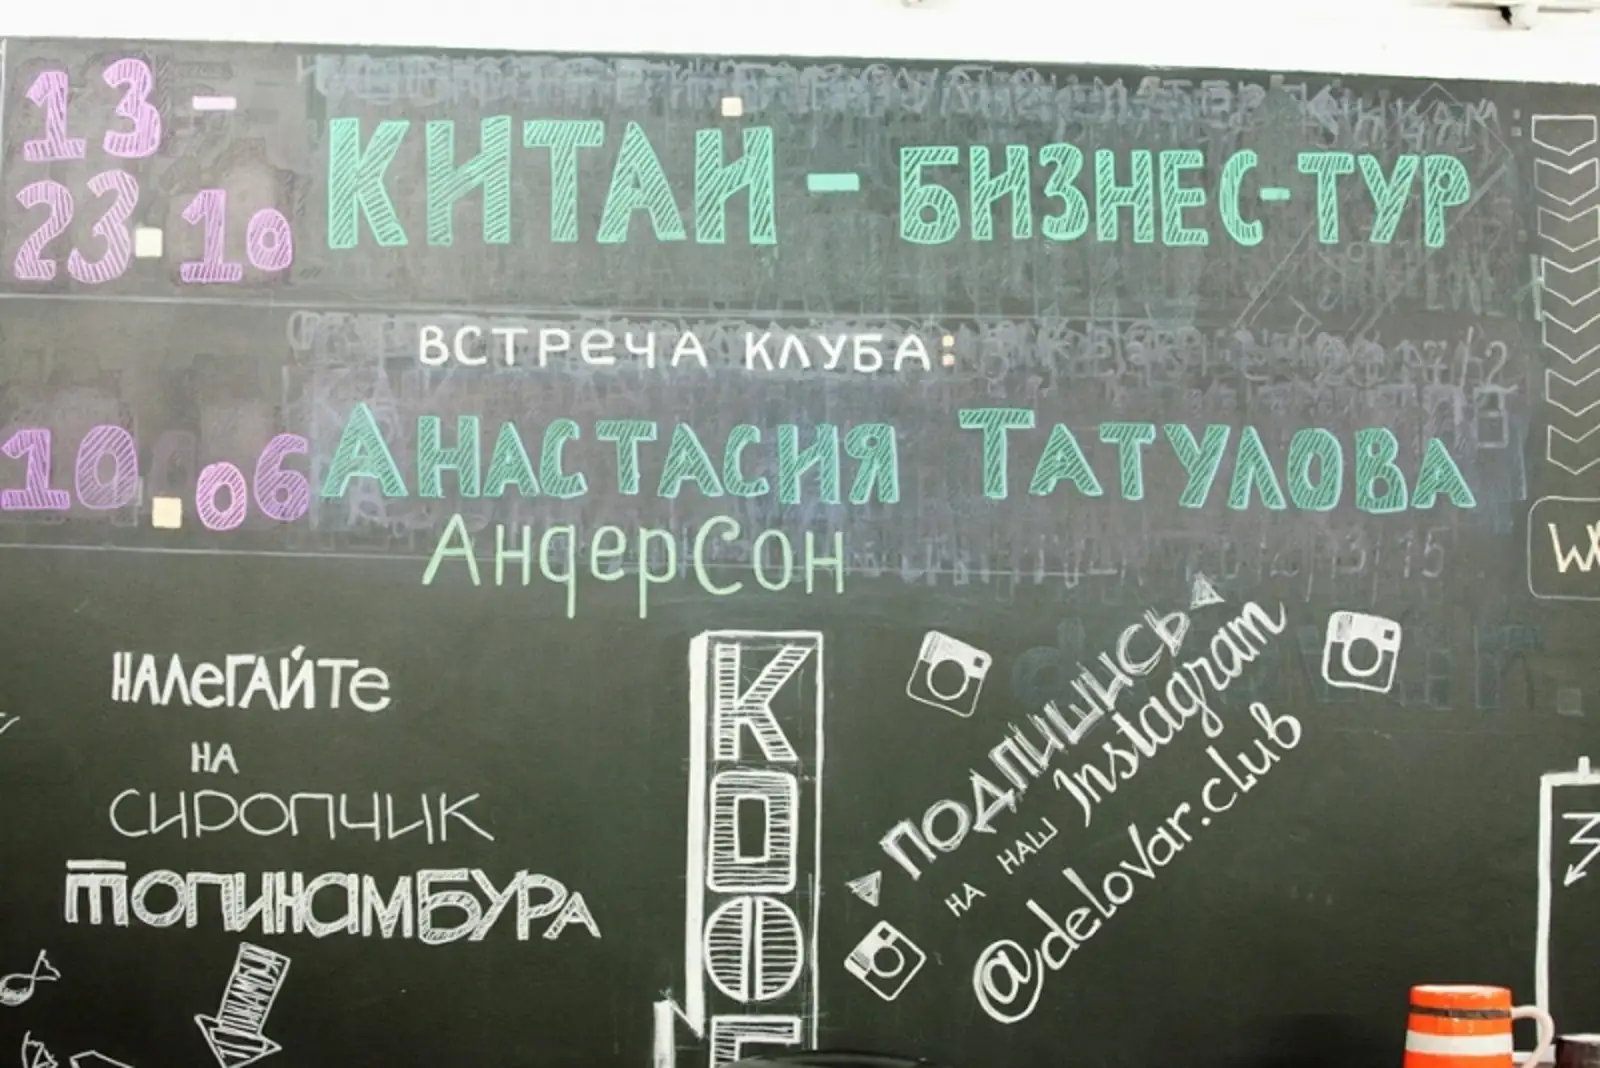 13-
23.10
КИТАЙ - БИЗНЕС-ТУР
ВСТРЕЧА КЛУБА:
10.06
АНАСТАСИЯ ТАТУЛОВА
АндерСон
НАЛЕГАЙТЕ
НА
СИРОПЧИК
ТОПИНАМБУРА
КОФЕ
ПОДПИШИСЬ
НА НАШ Instagram
@delovar.club